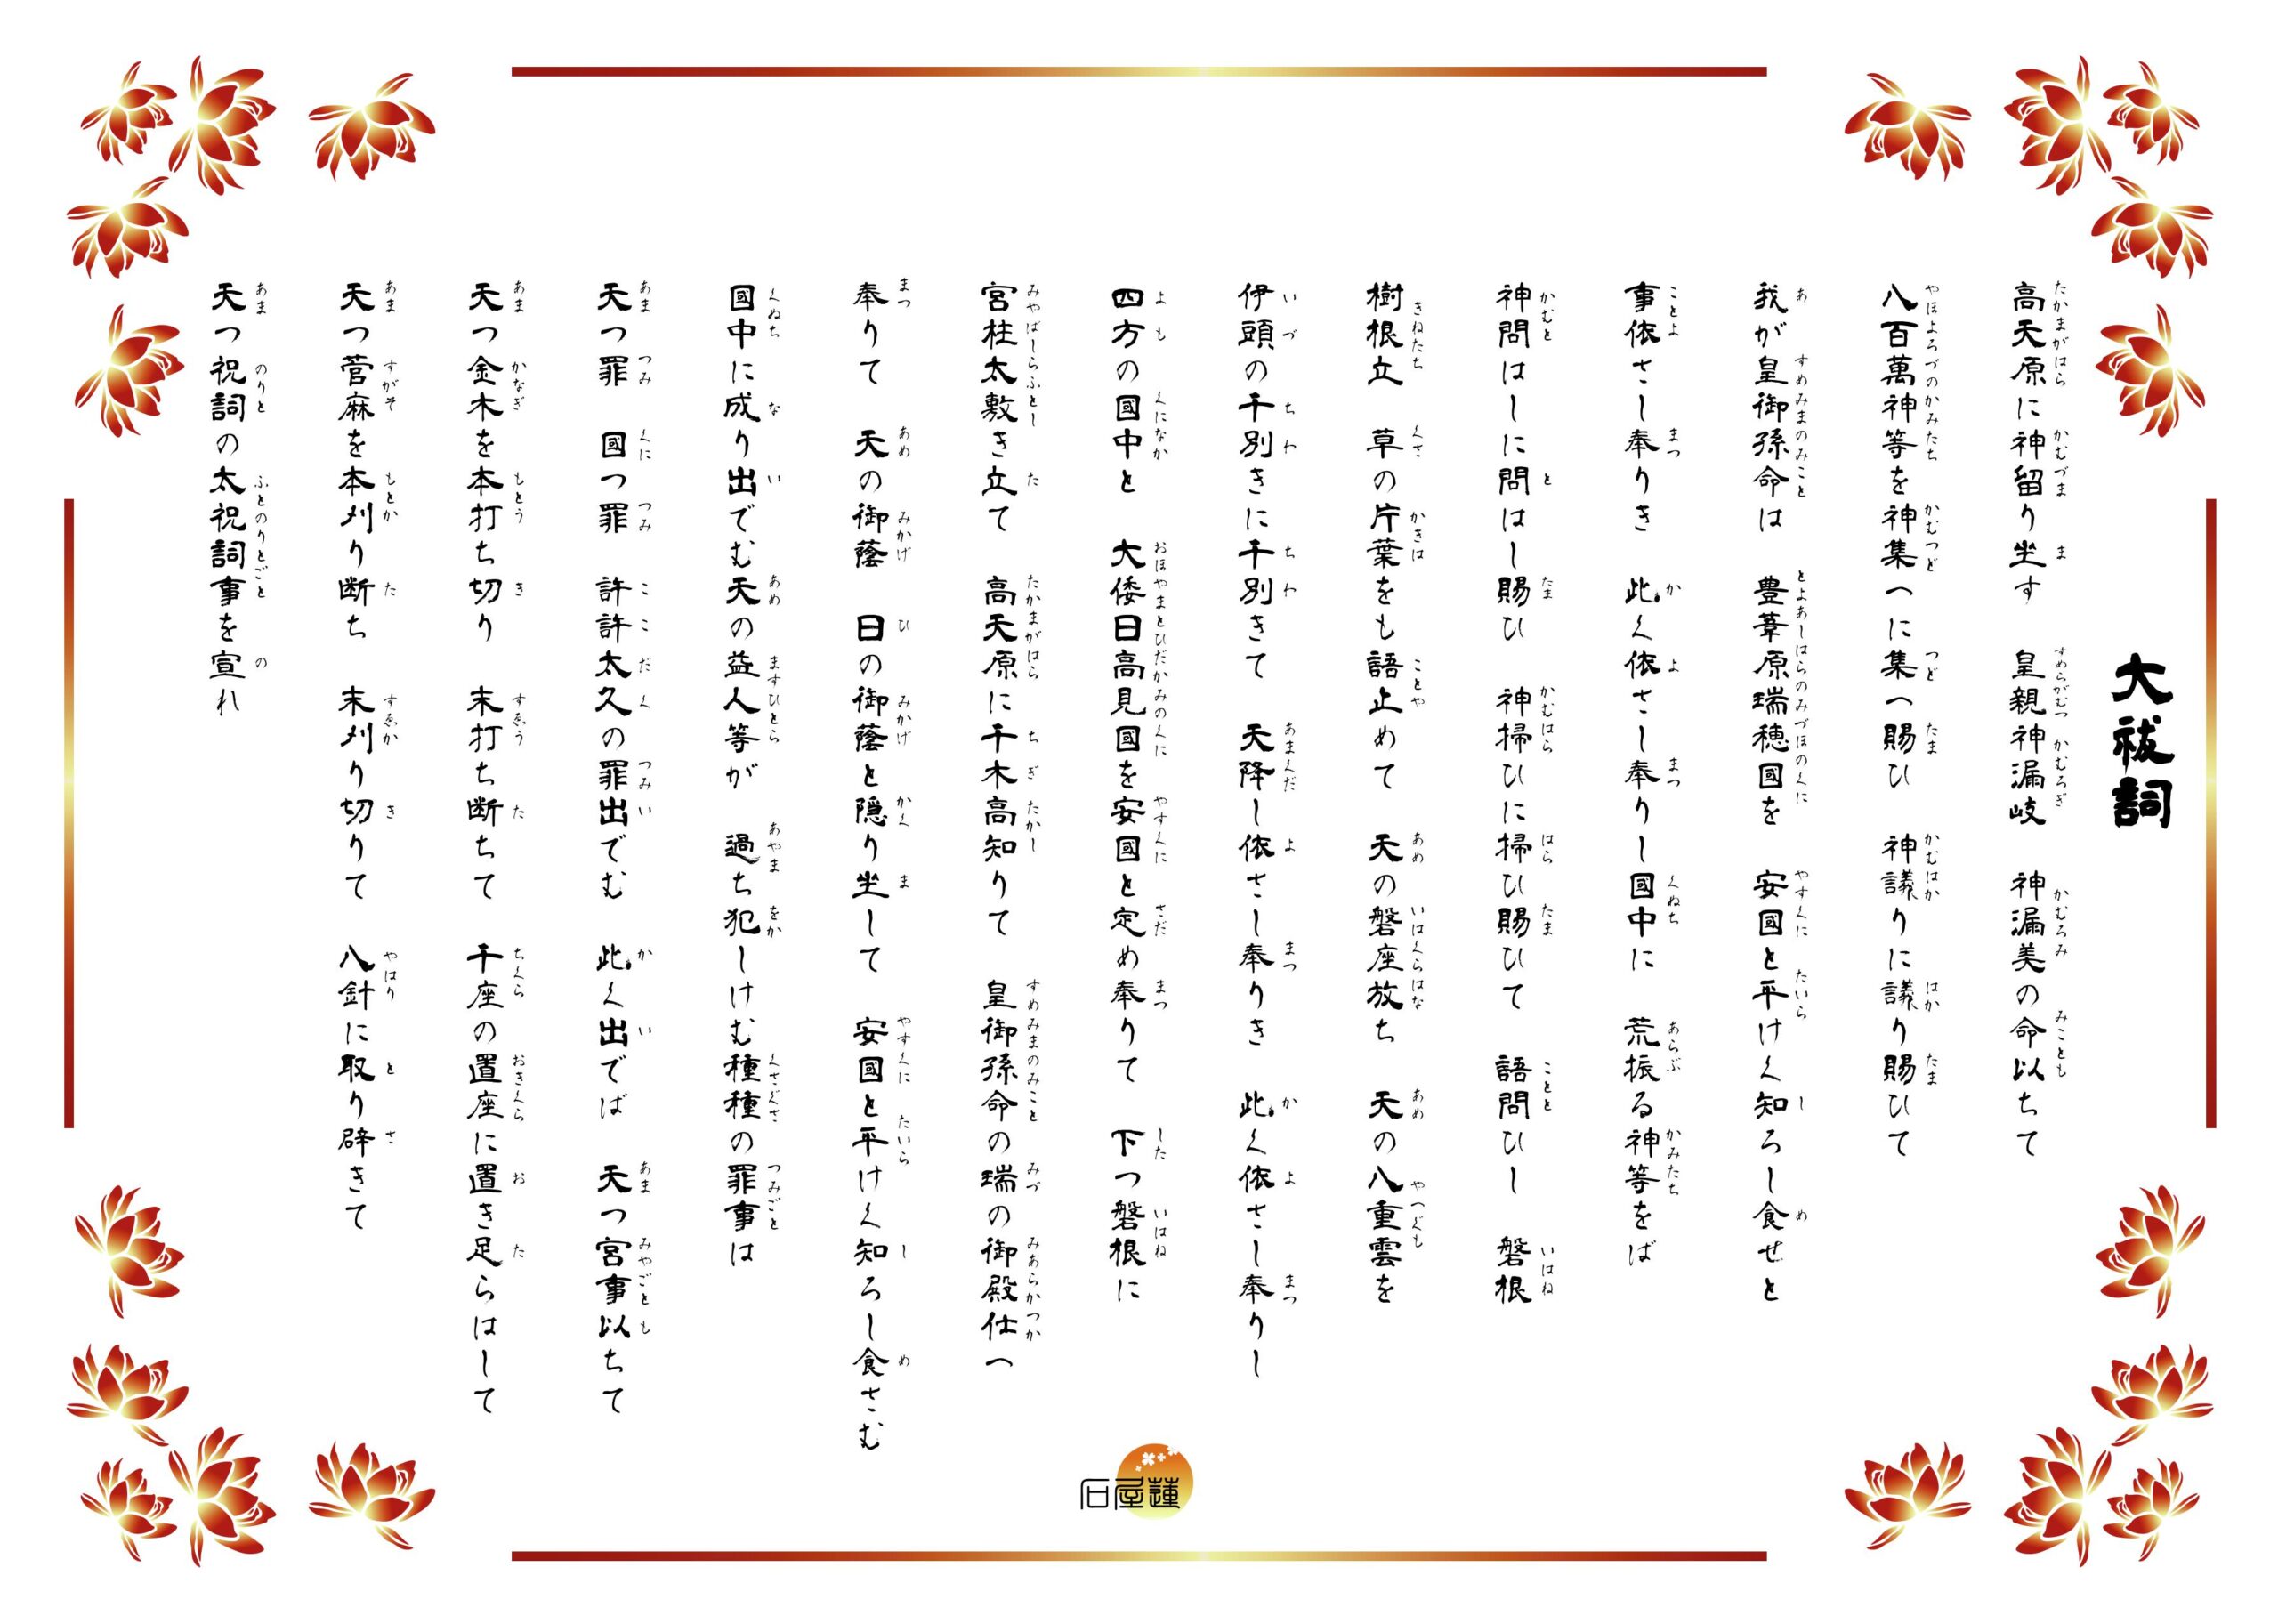 大祓詞
高天原に神留り坐す　皇親神漏岐　神漏美の命以ちて
八百萬神等を神集へに集へ賜ひ　神議りに議り賜ひて
我が皇御孫命は　豊葦原瑞穂国を　安國と平けく知ろし食せと
事依さし奉りき　此く依さし奉りし國中に　荒振る神等をば
神問はしに問はし賜ひ　神掃ひに掃ひ賜ひて　語問ひし　磐根
樹根立　草の片葉をも語止めて　天の磐座放ち　天の八重雲を
伊頭の千別きに千別きて　天降し依さし奉りき　此く依さし奉りし
四方の國中と　大倭日高見国を安國と定め奉りて　下つ磐根に
宮柱太敷き立て　高天原に千木高知りて　皇御孫命の瑞の御殿仕へ
奉りて　天の御蔭　日の御蔭と隠り坐して　安國と平けく知ろし食さむ
國中に成り出でむ天の益人等が　過ち犯しけむ種種の罪事は
天つ罪　國つ罪　許許太久の罪出でむ　此く出でば　天つ宮事以ちて
天つ金木を本打ち切り　末打ち断ちて　千座の置座に置き足らはして
天つ菅麻を本刈り断ち　末刈り切りて　八針に取り辟きて
天つ祝詞の太祝詞事を宣れ
石屋蓮